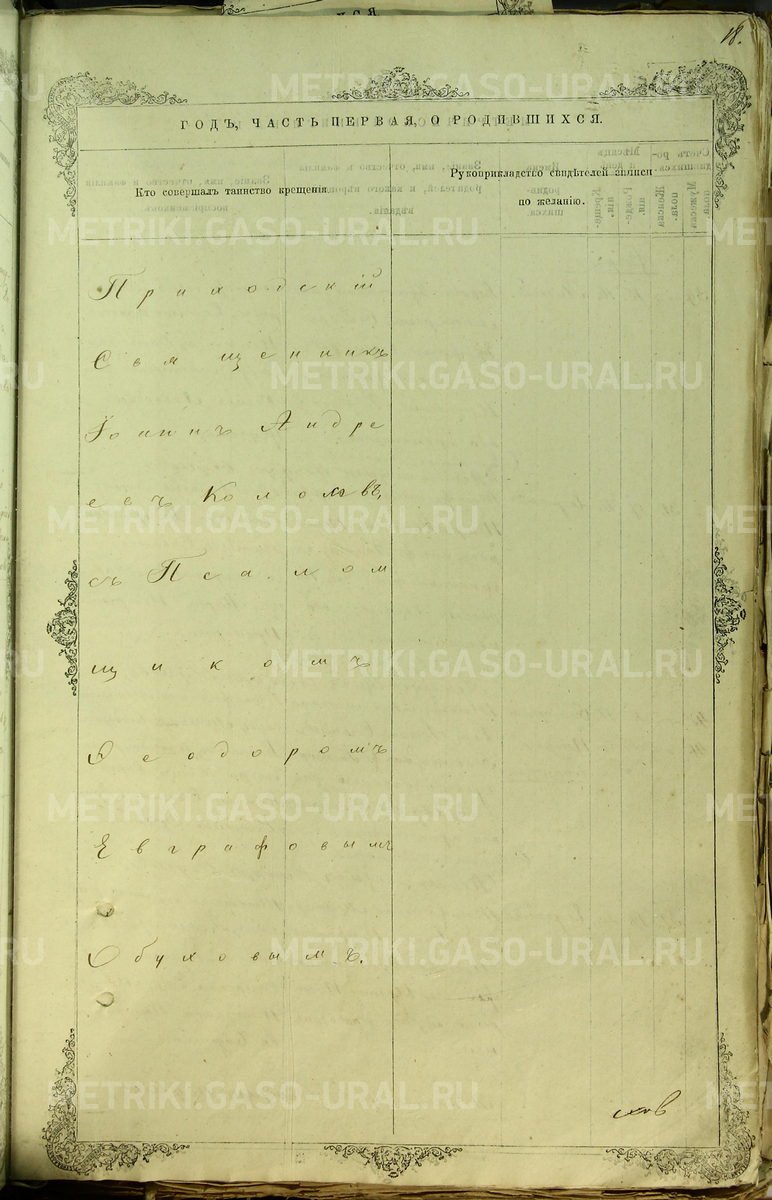 18.
ГОДЪ, ЧАСТЬ ПЕРВАЯ, О РОДИВШИХСЯ.
Кто совершалъ таинство крещенія.
Рукоприкладство свидѣтелей записи
по желанію.
Приходскій
Священникъ
Іоаннъ Андре
евъ
съ Псалом
щикомъ
Ѳеодоромъ
Евграфовымъ
Обуховымъ.
METRIKI.GASO-URAL.RU